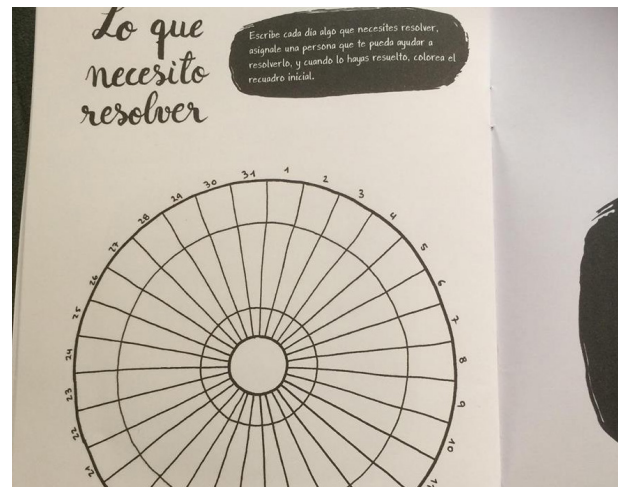 Lo que
necesito
resolver
Escribe cada día algo que necesites resolver,
asígnale una persona que te pueda ayudar a
resolverlo, y cuando lo hayas resuelto, colorea el
recuadro inicial.
1
2
3
4
5
6
7
8
9
10
21
22
23
24
25
26
27
28
29
30
31